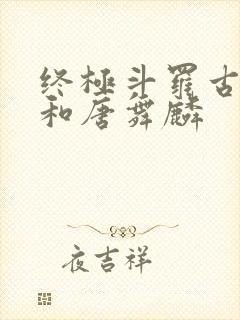 终极斗罗古
和唐舞麟
夜吉祥